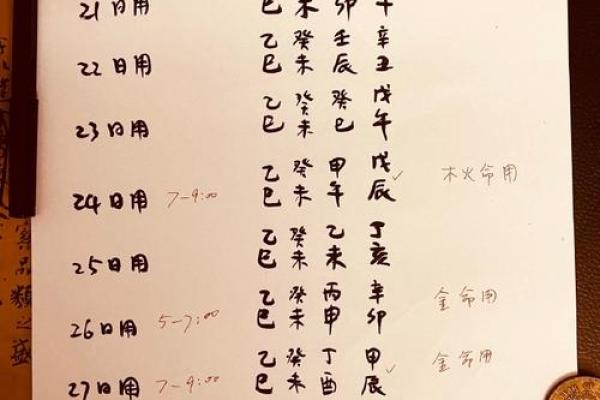 21日用
巳 未 卯
乙 癸 壬 辛
22日用 巳 未 辰 丑
乙 癸 癸 戊
23日用 巳 未 巳 午
乙 癸 甲 戊
24日用 7-9:00 巳 未 午 辰 ✓ 木火命用
乙 癸 乙 丁
25日用 巳 未 未 亥
乙 癸 丙 辛
26日用 5-7:00 巳 未 申 卯 金命用
乙 癸 丁 甲
27日用 7-9:00 巳 未 酉 辰 ✓ 金命用
品類之盛